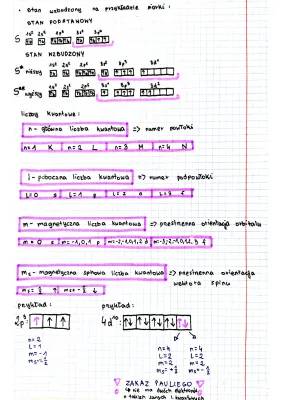 • Stan wzbudzony na przykładzie siarki:
STAN PODSTAWOWY
1s² 2s² 2p⁶ 3s² 3p⁴
S
STAN WZBUDZONY
1s² 2s² 2p⁶ 3s² 3p³ 3d¹
S* niższy
1s² 2s² 2p⁶ 3s¹ 3p³ 3d²
S** wyższy
liczby kwantowe:
n - główna liczba kwantowa => numer powłoki
n=1 K n=2 L n=3 M n=4 N
l - poboczna liczba kwantowa => numer podpowłoki
L=0 s L=1 p L=2 d L=3 f
m - magnetyczna liczba kwantowa => przestrzenna orientacja orbitalu
m=0 s m=-1,0,1 p m=-2,-1,0,1,2 d m=-3,-2,-1,0,1,2,3 f
ms - magnetyczna spinowa liczba kwantowa => przestrzenna orientacja
wektora spinu
ms = ½ ↑ ms = -½ ↓
przykład: przykład:
2p³: 4d¹⁰:
n=2
L=1
m=-1
ms=½
n=4 n=4
L=2 L=2
m=2 m=2
ms=+½ ms=-½
ZAKAZ PAULIEGO
nie ma dwóch elektronów
o takich samych l. kwantowych